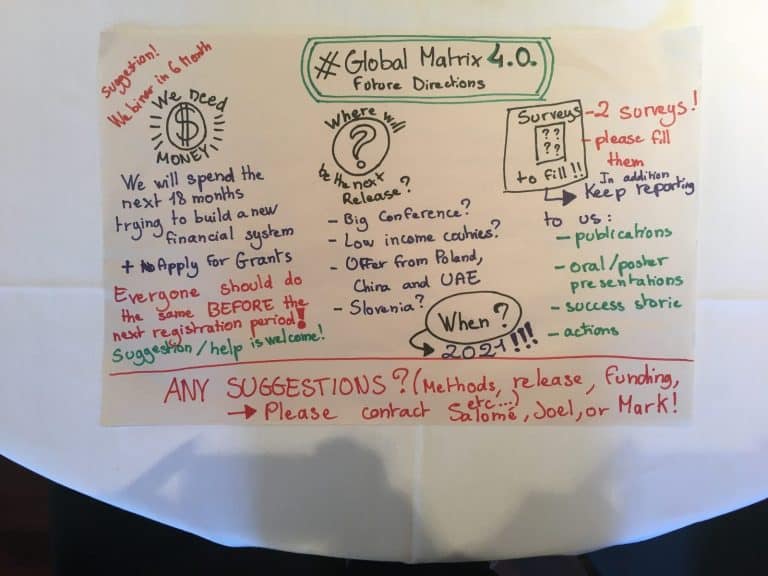 # Global Matrix 4.0.
Future Directions
Suggestion!
Webinar in 6 Month
We need
$
MONEY
We will spend the
next 18 months
trying to build a new
financial system
+ Apply for Grants
Everyone should do
the same BEFORE the
next registration period!
Suggestion/help is welcome!
Where will
?
be the next
Release?
- Big Conference?
- Low income coutries?
- Offer from Poland,
China and UAE
- Slovenia?
When?
2021!!!
Surveys
??
??
to fill!!
- 2 surveys!
- please fill
them
In addition
Keep reporting
to us:
- publications
- oral/poster
presentations
- success storie
- actions
ANY SUGGESTIONS? (Methods, release, funding,
etc...)
→ Please contact Salomé, Joel, or Mark!